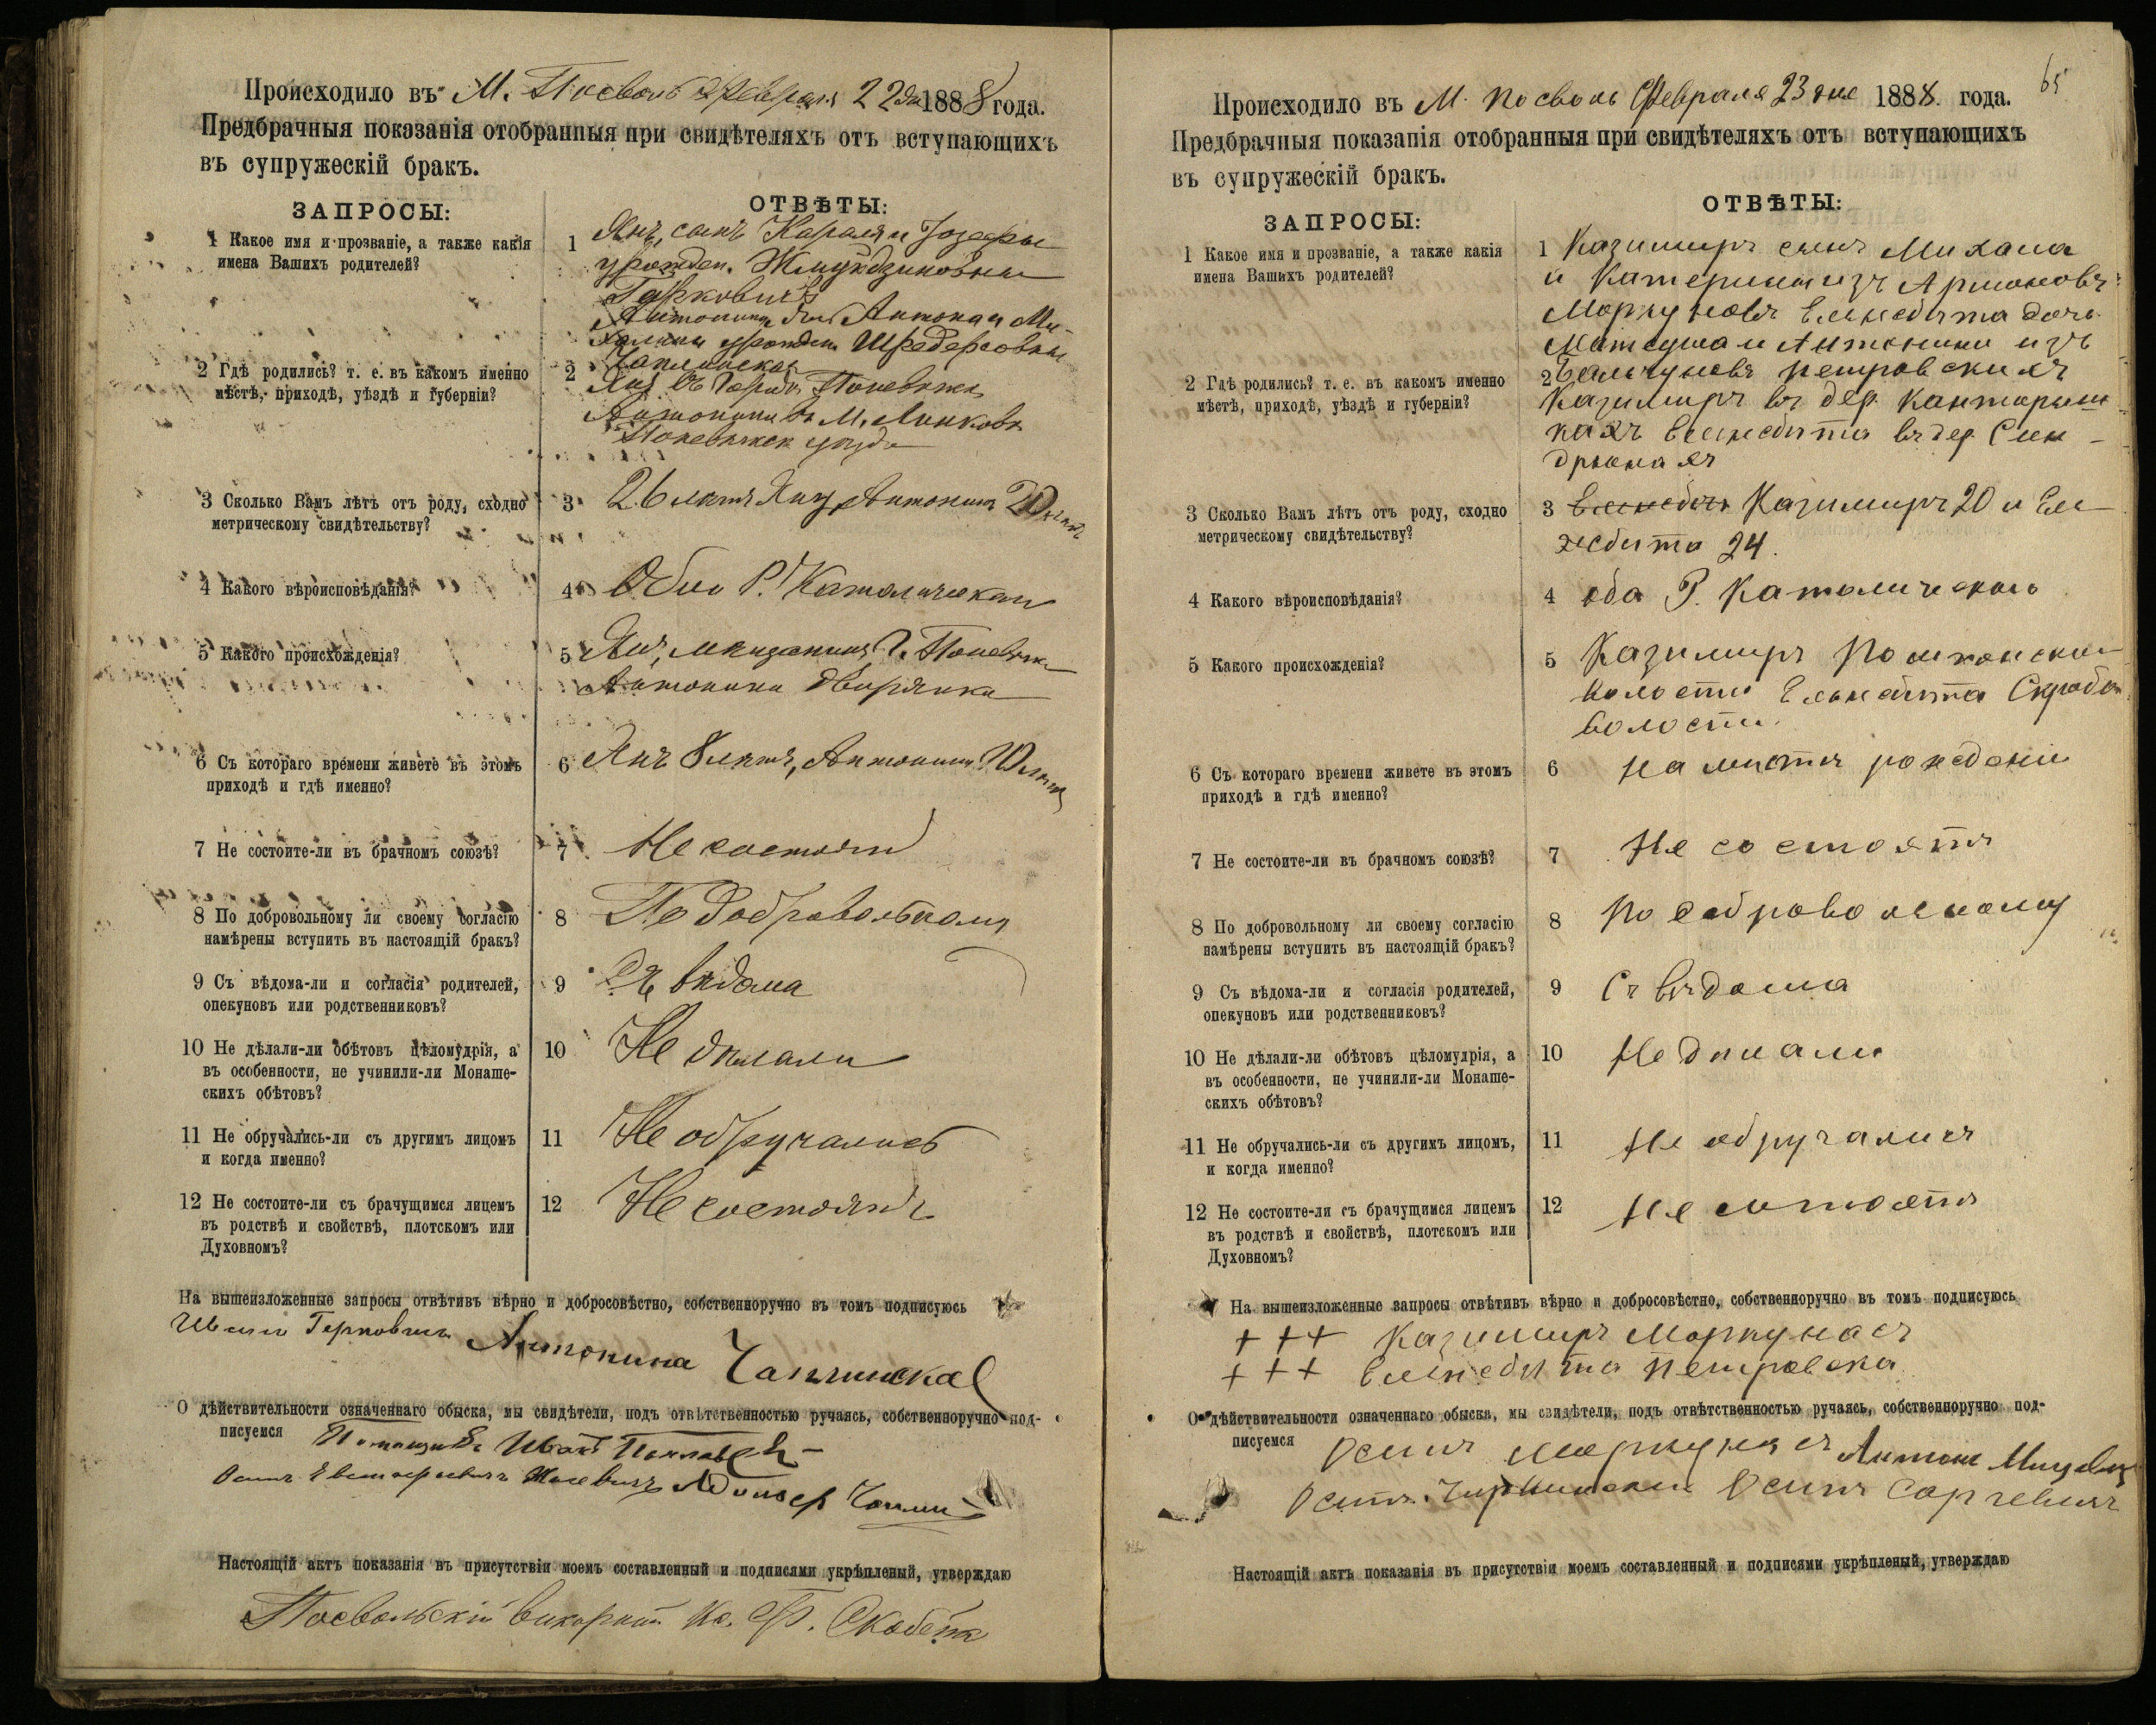 Происходило въ М. Посволь Февраля 22 дня 1888 года.
Предбрачныя показанія отобранныя при свидѣтеляхъ отъ вступающихъ
въ супружескій бракъ.
ЗАПРОСЫ:
ОТВѢТЫ:
1 Какое имя и прозваніе, а также какія
имена Вашихъ родителей?
1 Янъ, сынъ Кароля и Іозефы
урожден.
Антонина дочь Антона и Ми-
халины урожден. Шредерсовны
2 Гдѣ родились? т. е. въ какомъ именно
мѣстѣ, приходѣ, уѣздѣ и губерніи?
2 Янъ въ Городѣ Поневѣжѣ
Антонина въ М. Линковѣ
Поневѣжск уѣзда
3 Сколько Вамъ лѣтъ отъ роду, сходно
метрическому свидѣтельству?
3 26 лѣтъ Янъ, Антонина
4 Какого вѣроисповѣданія?
4 Обои Р. Католическаго
5 Какого происхожденія?
5 Янъ, мѣщанинъ Г. Поневѣжа
Антонина дворянка
6 Съ котораго времени живете въ этомъ
приходѣ и гдѣ именно?
6 Янъ 8 лѣтъ, Антонина
7 Не состоите-ли въ брачномъ союзѣ?
7 Не состоятъ
8 По добровольному ли своему согласію
намѣрены вступить въ настоящій бракъ?
8 По добровольному
9 Съ вѣдома-ли и согласія родителей,
опекуновъ или родственниковъ?
9 Съ вѣдома
10 Не дѣлали-ли обѣтовъ цѣломудрія, а
въ особенности, не учинили-ли Монаше-
скихъ обѣтовъ?
10 Не дѣлали
11 Не обручались-ли съ другимъ лицомъ
и когда именно?
11 Не обручались
12 Не состоите-ли съ брачущимся лицемъ
въ родствѣ и свойствѣ, плотскомъ или
Духовномъ?
12 Не состоятъ
На вышеизложенные запросы отвѣтивъ вѣрно и добросовѣстно, собственноручно въ томъ подписуюсь
Антонина Чаплинска
О дѣйствительности означеннаго обыска, мы свидѣтели, подъ отвѣтственностью ручаясь, собственноручно под-
писуемся
Иванъ
Осипъ
Настоящій актъ показанія въ присутствіи моемъ составленный и подписями укрѣпленый, утверждаю
Посвольскій викарный Кс. Ф. Скобейка
65
Происходило въ М. Посволь Февраля 23 дня 1888 года.
Предбрачныя показанія отобранныя при свидѣтеляхъ отъ вступающихъ
въ супружескій бракъ.
ЗАПРОСЫ:
ОТВѢТЫ:
1 Какое имя и прозваніе, а также какія
имена Вашихъ родителей?
1 Казимиръ сынъ Михала
и Катерины изъ
Моркуновъ Ельжбѣта дочь
Матеуша и Антонины изъ
2 Гдѣ родились? т. е. въ какомъ именно
мѣстѣ, приходѣ, уѣздѣ и губерніи?
2
Казимиръ въ дер. Кантарыш
кахъ Ельжбѣта въ дер.
3 Сколько Вамъ лѣтъ отъ роду, сходно
метрическому свидѣтельству?
3 Казимиръ 20 и Ель
жбѣта 24.
4 Какого вѣроисповѣданія?
4 оба Р. Католическаго
5 Какого происхожденія?
5 Казимиръ
волости Ельжбѣта
волости.
6 Съ котораго времени живете въ этомъ
приходѣ и гдѣ именно?
6 на мѣстѣ рожденія
7 Не состоите-ли въ брачномъ союзѣ?
7 Не состоятъ
8 По добровольному ли своему согласію
намѣрены вступить въ настоящій бракъ?
8 По добровольному
9 Съ вѣдома-ли и согласія родителей,
опекуновъ или родственниковъ?
9 Съ вѣдома
10 Не дѣлали-ли обѣтовъ цѣломудрія, а
въ особенности, не учинили-ли Монаше-
скихъ обѣтовъ?
10 Не дѣлали
11 Не обручались-ли съ другимъ лицомъ,
и когда именно?
11 Не обручались
12 Не состоите-ли съ брачущимся лицемъ
въ родствѣ и свойствѣ, плотскомъ или
Духовномъ?
12 Не состоятъ
На вышеизложенные запросы отвѣтивъ вѣрно и добросовѣстно, собственноручно въ томъ подписуюсь
+++ Казимиръ Моркунасъ
+++ Ельжбѣта Петровска
О дѣйствительности означеннаго обыска, мы свидѣтели, подъ отвѣтственностью ручаясь, собственноручно под-
писуемся
Осипъ Моркунасъ Антонъ
Осипъ Осипъ
Настоящій актъ показанія въ присутствіи моемъ составленный и подписями укрѣпленый, утверждаю